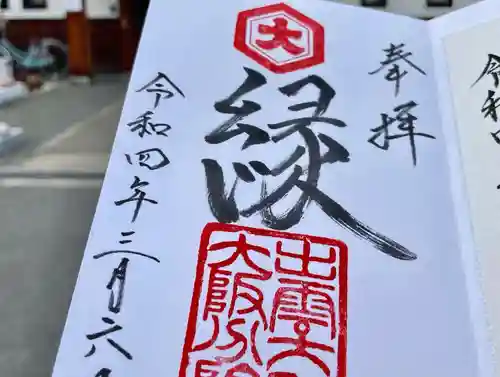 奉拝
大
縁
出雲大
大阪分院
令和四年三月六
令和